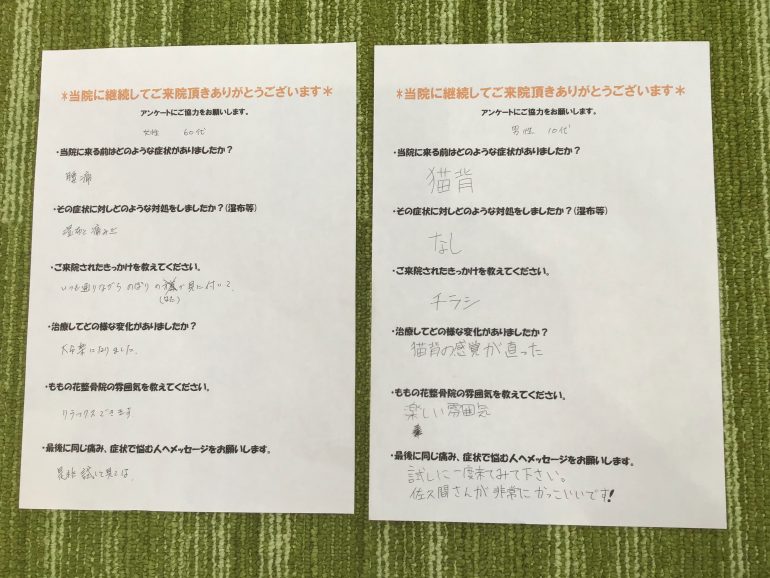 ＊当院に継続してご来院頂きありがとうございます＊
アンケートにご協力をお願いします。
女性 60代
・当院に来る前はどのような症状がありましたか？
腰痛
・その症状に対しどのような対処をしましたか？(湿布等)
湿布と痛み止
・ご来院されたきっかけを教えてください。
いつも通りながら のぼりの が気に付いて、
(はた)
・治療してどの様な変化がありましたか？
大分楽になりました。
・ももの花整骨院の雰囲気を教えてください。
リラックスできます
・最後に同じ痛み、症状で悩む人へメッセージをお願いします。
是非 試して見ては、
＊当院に継続してご来院頂きありがとうございます＊
アンケートにご協力をお願いします。
男性 10代
・当院に来る前はどのような症状がありましたか？
猫背
・その症状に対しどのような対処をしましたか？(湿布等)
なし
・ご来院されたきっかけを教えてください。
チラシ
・治療してどの様な変化がありましたか？
猫背の感覚が直った
・ももの花整骨院の雰囲気を教えてください。
楽しい雰囲気
・最後に同じ痛み、症状で悩む人へメッセージをお願いします。
試しに一度来てみて下さい。
佐久間さんが非常にかっこいいです!